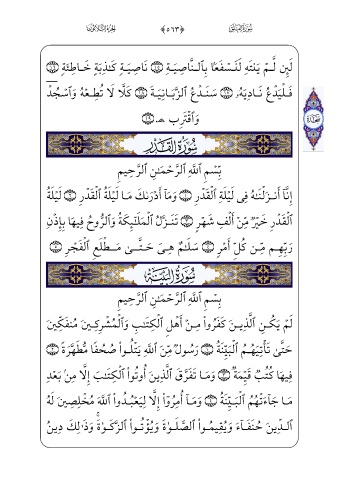 سُورَةُ العَلَقِ ﴿٥٦٣﴾ الجُزءُ الثَّلَاثُونَ
لَئِن لَّمۡ يَنتَهِ لَنَسۡفَعَۢا بِٱلنَّاصِيَةِ ۝ نَاصِيَةٖ كَٰذِبَةٍ خَاطِئَةٖ ۝
فَلۡيَدۡعُ نَادِيَهُۥ ۝ سَنَدۡعُ ٱلزَّبَانِيَةَ ۝ كَلَّا لَا تُطِعۡهُ وَٱسۡجُدۡۤ
وَٱقۡتَرِب ۩ ۝
سجدة
سُورَةُ القَدۡرِ
بِسۡمِ ٱللَّهِ ٱلرَّحۡمَٰنِ ٱلرَّحِيمِ
إِنَّآ أَنزَلۡنَٰهُ فِي لَيۡلَةِ ٱلۡقَدۡرِ ۝ وَمَآ أَدۡرَىٰكَ مَا لَيۡلَةُ ٱلۡقَدۡرِ ۝ لَيۡلَةُ
ٱلۡقَدۡرِ خَيۡرٞ مِّنۡ أَلۡفِ شَهۡرٖ ۝ تَنَزَّلُ ٱلۡمَلَٰٓئِكَةُ وَٱلرُّوحُ فِيهَا بِإِذۡنِ
رَبِّهِم مِّن كُلِّ أَمۡرٖ ۝ سَلَٰمٌ هِيَ حَتَّىٰ مَطۡلَعِ ٱلۡفَجۡرِ ۝
سُورَةُ البَيِّنَةِ
بِسۡمِ ٱللَّهِ ٱلرَّحۡمَٰنِ ٱلرَّحِيمِ
لَمۡ يَكُنِ ٱلَّذِينَ كَفَرُواْ مِنۡ أَهۡلِ ٱلۡكِتَٰبِ وَٱلۡمُشۡرِكِينَ مُنفَكِّينَ
حَتَّىٰ تَأۡتِيَهُمُ ٱلۡبَيِّنَةُ ۝ رَسُولٞ مِّنَ ٱللَّهِ يَتۡلُواْ صُحُفٗا مُّطَهَّرَةٗ ۝
فِيهَا كُتُبٞ قَيِّمَةٞ ۝ وَمَا تَفَرَّقَ ٱلَّذِينَ أُوتُواْ ٱلۡكِتَٰبَ إِلَّا مِنۢ بَعۡدِ
مَا جَآءَتۡهُمُ ٱلۡبَيِّنَةُ ۝ وَمَآ أُمِرُوٓاْ إِلَّا لِيَعۡبُدُواْ ٱللَّهَ مُخۡلِصِينَ لَهُ
ٱلدِّينَ حُنَفَآءَ وَيُقِيمُواْ ٱلصَّلَوٰةَ وَيُؤۡتُواْ ٱلزَّكَوٰةَۚ وَذَٰلِكَ دِينُ